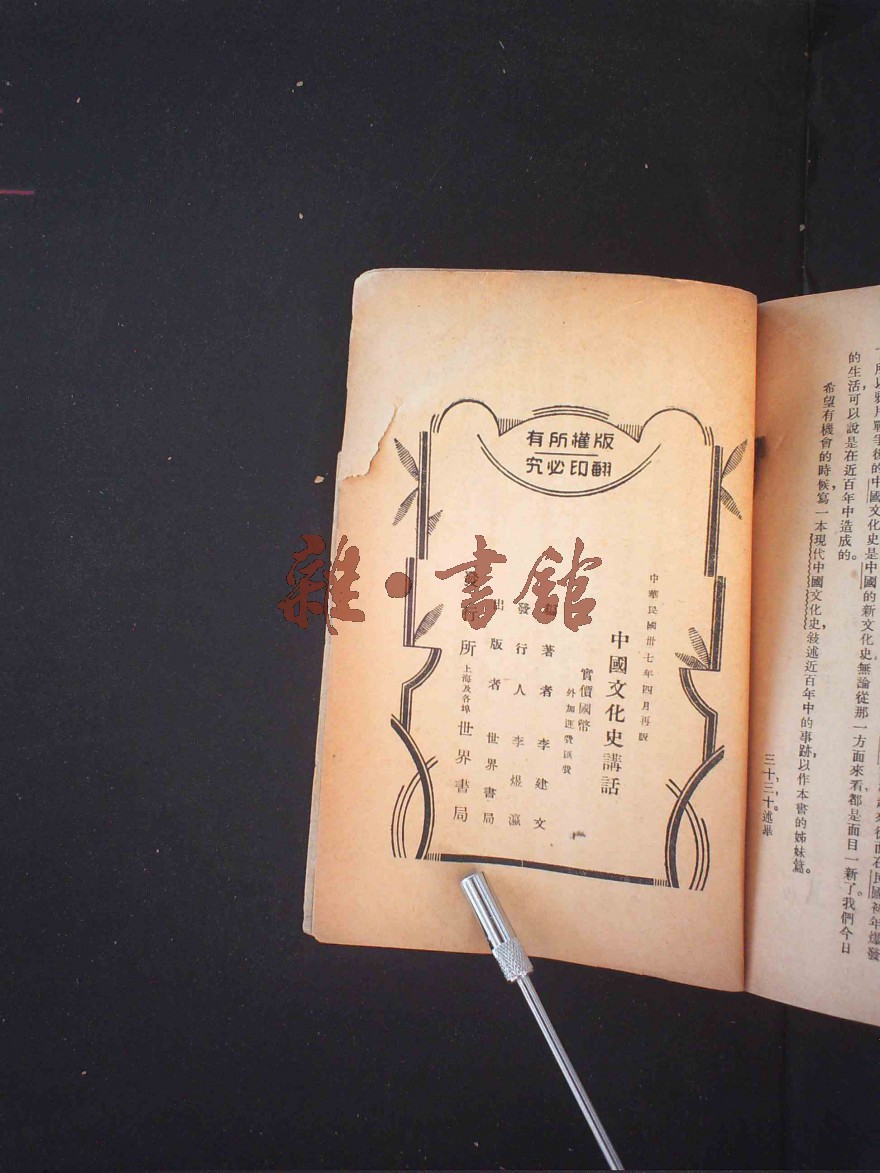 版權所有
翻印必究
中華民國卅七年四月再版
中國文化史講話
實價國幣
外加運費匯費
編著者 李建文
發行人 李煜瀛
出版者 世界書局
發行所 上海及各埠 世界書局
雜·書館
的中國文化史是中國的新文化史無論從那一方面來看,都是面目一新了。我們今日
的生活可以說是在近百年中造成的。
希望有機會的時候,寫一本現代中國文化史,敍述近百年中的事跡,以作本書的姊妹篇。
三十,三,十。述畢